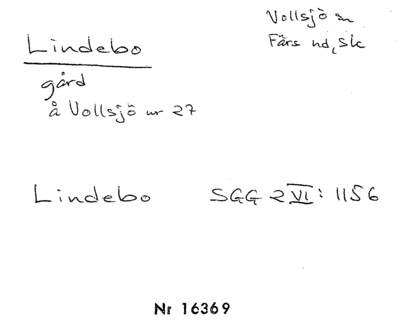 Lindebo
Vollsjö sn
Färs hd, Sk
gård
å Vollsjö nr 27
Lindebo SGG 2 VI: 1156
Nr 16369